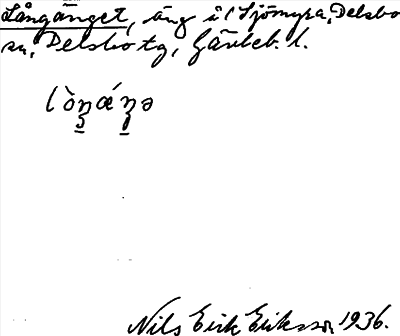 Långänget, äng i Sjömyra, Delsbo
sn, Delsbo tg, Gävleb. l.
Nils Erik Eriksson 1936.